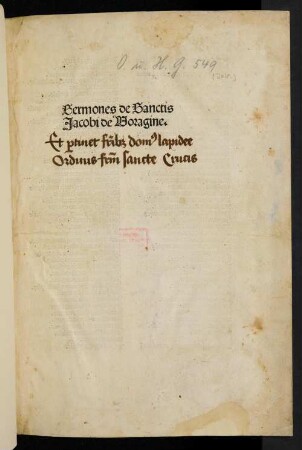 O in. H. G. 549
Sermones de Sanctis
Jacobi de Voragine.
Et ptinet frıbꝫ domꝰ lapidee
Ordinis frm̄ sancte Crucis